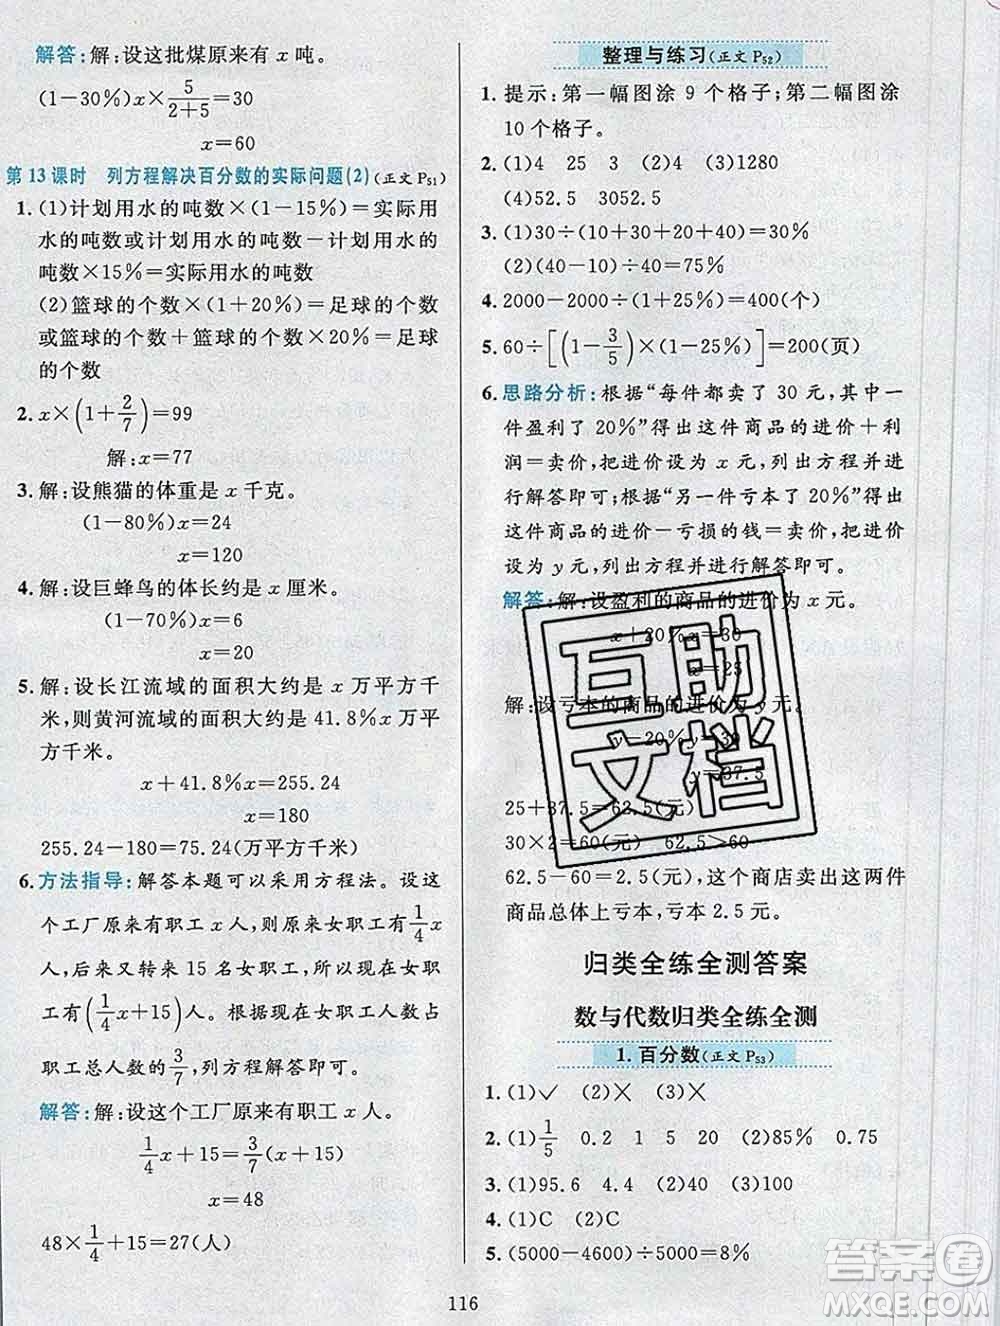 解答:解:设这批煤原来有 x 吨。
(1-30%)x×5/(2+5)=30
x=60
第13课时 列方程解决百分数的实际问题(2)(正文 P51)
1. (1)计划用水的吨数×(1-15%)=实际用
水的吨数或计划用水的吨数-计划用水的
吨数×15%=实际用水的吨数
(2)篮球的个数×(1+20%)=足球的个数
或篮球的个数+篮球的个数×20%=足球
的个数
2. x×(1+2/7)=99
解:x=77
3. 解:设熊猫的体重是 x 千克。
(1-80%)x=24
x=120
4. 解:设巨蜂鸟的体长约是 x 厘米。
(1-70%)x=6
x=20
5. 解:设长江流域的面积大约是 x 万平方千
米,则黄河流域的面积大约是 41.8%x 万平
方千米。
x+41.8%x=255.24
x=180
255.24-180=75.24(万平方千米)
6. 方法指导:解答本题可以采用方程法。设这
个工厂原来有职工 x 人,则原来女职工有1/4x
人,后来又转来 15 名女职工,此时工厂女职
工有(1/4x+15)人。根据此时女职工人数÷
职工总人数=3/7,列出方程进行解答即可。
解答:解:设这个工厂原来有职工 x 人。
1/4x+15=3/7(x+15)
x=48
48×1/4+15=27(人)
整理与练习(正文 P52)
1. 提示:第一幅图涂 9 个格子;第二幅图涂
10 个格子。
2. (1)4 25 3 (2)75 (3)1280
(4)52.5 3052.5
3. (1)30÷(30+10+20+40)=30%
(2)(40-10)÷40=75%
4. 2000-2000÷(1+25%)=400(个)
5. 60÷[(1-3/5)×(1-25%)]=200(页)
6. 思路分析:根据“每件都卖了 30 元,其中一
件盈利了 20%”得出这件商品的进价+利
润=卖价,把进价设为 x 元,列出方程并进
行解答即可;根据“另一件亏本了 20%”得出
这件商品的进价-亏损的钱=卖价,把进价
设为 y 元,列出方程并进行解答即可。
解答:解:设盈利的商品的进价为 x 元。
x+20%x=30
x=25
解:设亏本的商品的进价为 y 元。
y-20%y=30
y=37.5
25+37.5=62.5(元)
30×2=60(元) 62.5>60
62.5-60=2.5(元),这个商店卖出这两件
商品总体上亏本,亏本 2.5 元。
互助
文档
归类全练全测答案
数与代数归类全练全测
1. 百分数(正文 P53)
1. (1)✓ (2)× (3)×
2. (1)1/5 0.2 1 5 20 (2)85% 0.75
3. (1)95.6 4.4 (2)40 (3)100
4. (1)C (2)C
5. (5000-4600)÷5000=8%
答案圈
MXQE.COM
116